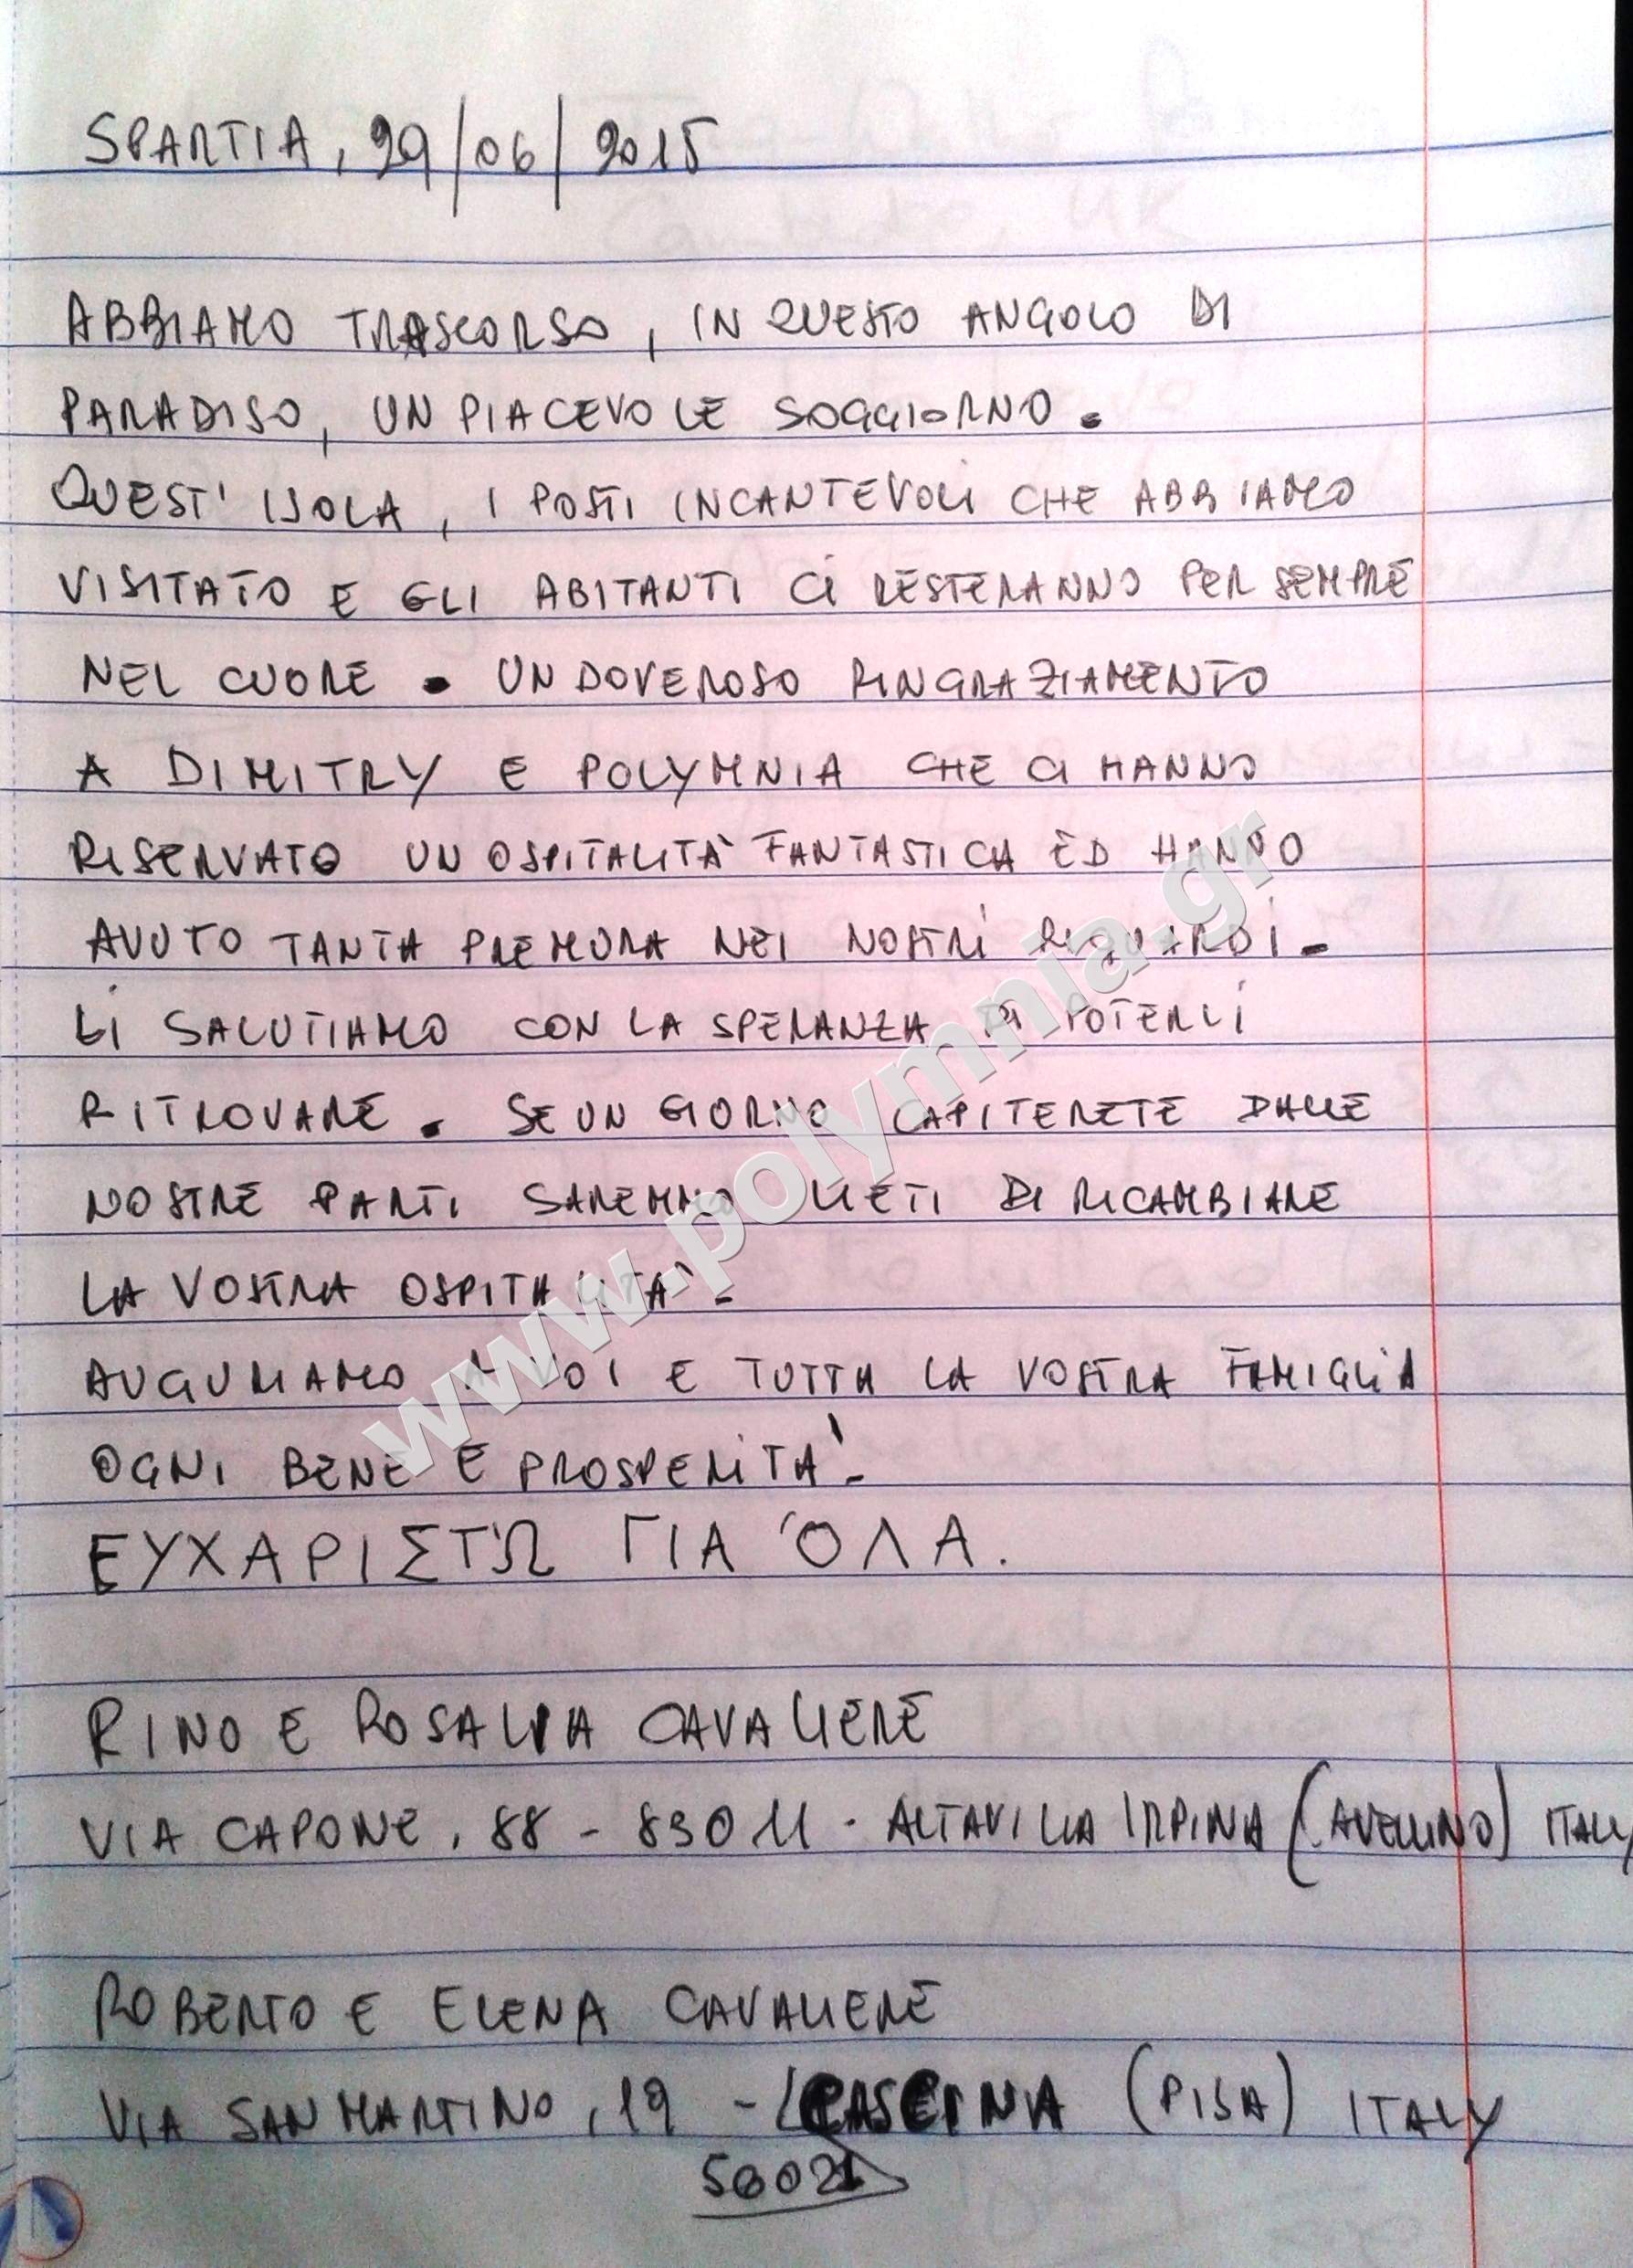 SPARTIA, 29/06/2015
ABBIAMO TRASCORSO, IN QUESTO ANGOLO DI
PARADISO, UN PIACEVOLE SOGGIORNO.
QUEST' ISOLA, I POSTI INCANTEVOLI CHE ABBIAMO
VISITATO E GLI ABITANTI CI RESTERANNO PER SEMPRE
NEL CUORE. UN DOVEROSO RINGRAZIAMENTO
A DIMITRY E POLYMNIA CHE CI HANNO
RISERVATO UN OSPITALITÀ FANTASTICA ED HANNO
AVUTO TANTA PREMURA NEI NOSTRI RIGUARDI.
LI SALUTIAMO CON LA SPERANZA DI POTERLI
RITROVARE. SE UN GIORNO CAPITERETE DALLE
NOSTRE PARTI SAREMMO LIETI DI RICAMBIARE
LA VOSTRA OSPITALITÀ.
AUGURIAMO A VOI E TUTTA LA VOSTRA FAMIGLIA
OGNI BENE E PROSPERITÀ.
ΕΥΧΑΡΙΣΤΏ ΓΙΑ ΌΛΑ.
RINO E ROSALIA CAVALIERE
VIA CAPONE, 88 - 83011 - ALTAVILLA IRPINA (AVELLINO) ITALY
ROBERTO E ELENA CAVALIERE
VIA SAN MARTINO, 19 - CASCINA (PISA) ITALY
56021
www.polymnia.gr